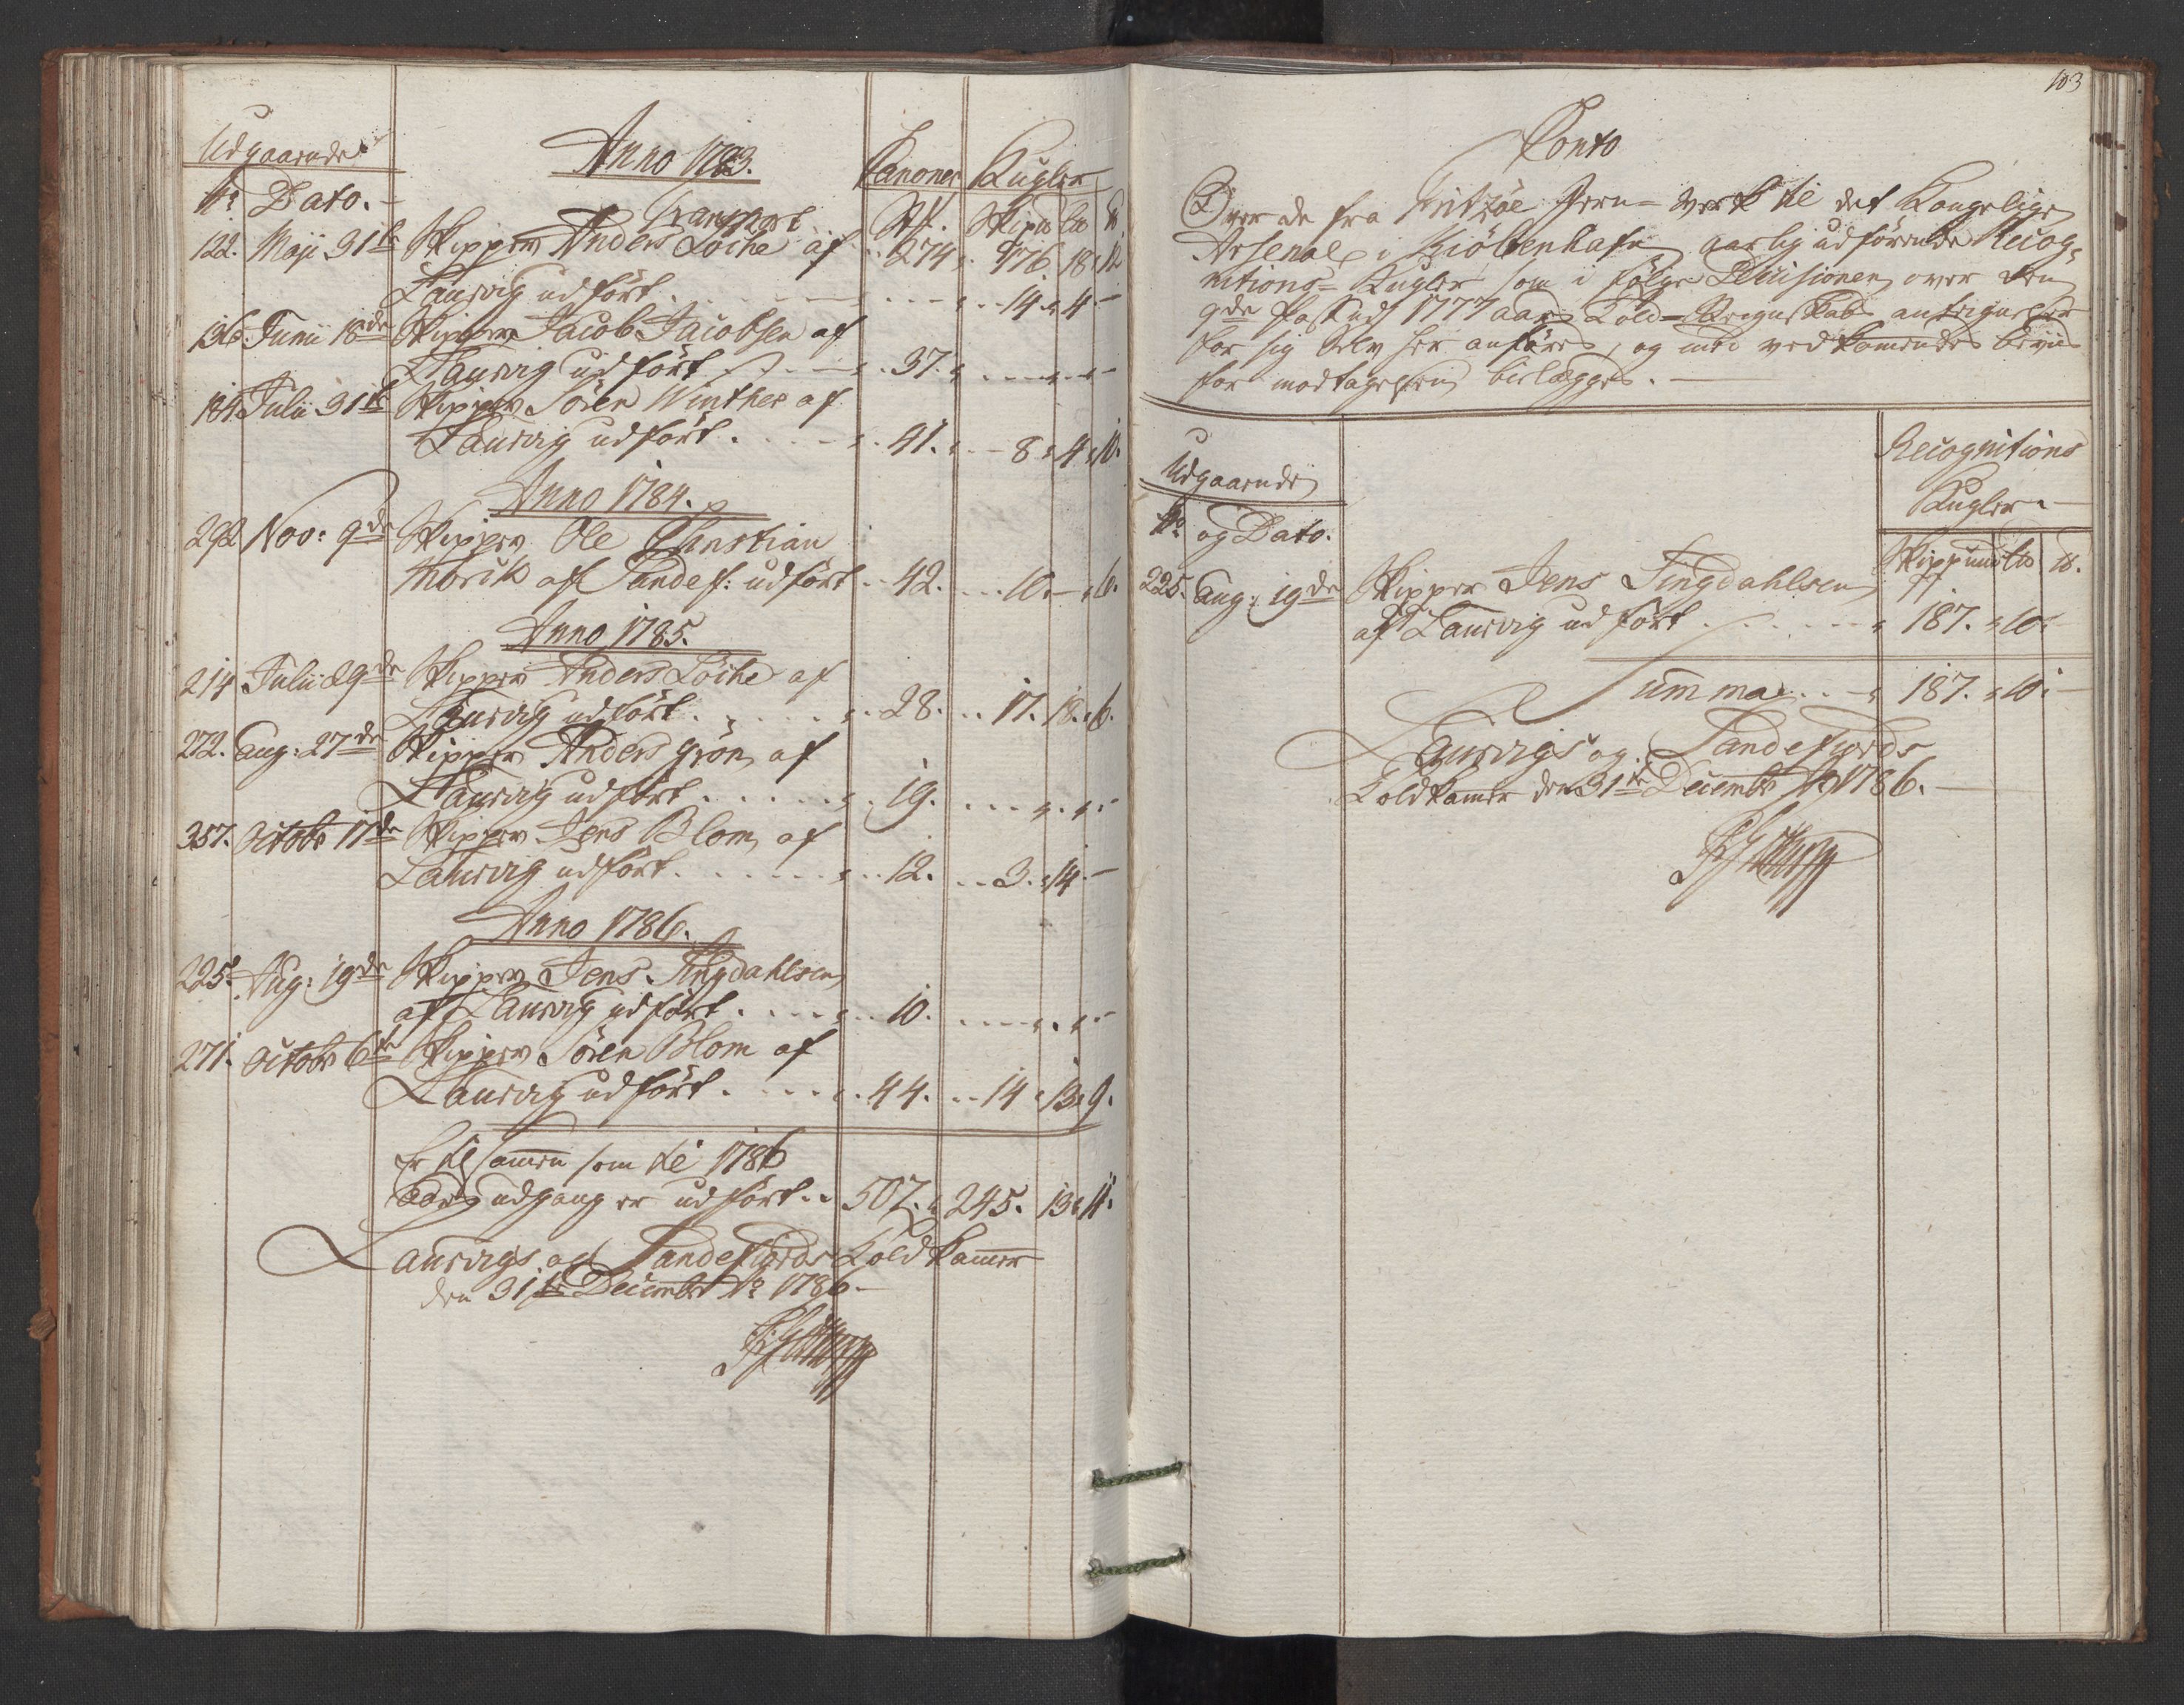 Udgaaende
Anno 1783.
Canoner Kugler
No Dato.
Transport
St. Skipd Lb ℔
122. Maji 31te Skipper Anders Löche af 274. 176. 18. 12
Laurvig udfört . . . . . 14. 4. -
136. Junii 18de Skipper Jacob Jacobsen af
Laurvig udfört . . . 37. . . . -
184. Julii 31te Skipper Sören Winther af
Laurvig udfört . . . 41. . . 8. 4. 10.
Anno 1784.
292 Nov: 9de Skipper Ole Christian
af Sandef: udfört . 42. . . 10. - 6.
Anno 1785.
214 Julii 29de Skipper Anders Löche af
Laurvig udfört . . . . 28. . . 17. 18. 6.
272. Aug: 27de Skipper Anders Grön af
Laurvig udfört . . . . 19. . . . . -
357. Octobr 17de Skipper Jens Blom af
Laurvig udfört . . . . 12. . . 3. 14. -
Anno 1786.
225. Aug: 19de Skipper Jens Tingdahlsen
af Laurvig udfört . . . . 10. . . . . -
271. Octobr 6te Skipper Sören Blom af
Laurvig udfört . . . . 44. . . 14. 13. 9.
Er tilsamen som til 1786
Aars udgang er udfört . . 507. 245. 13. 11.
Laurvigs og Sandefiords Toldkamer
den 31te Decembr Ao 1786.
103
Conto
Over de fra Fritzöe Jern-Verk til det Kongelige
Arsenal i Kiöbenhafn aarlig udförende Recog-
nitions-Kugler som i fölge Decisionen over den
9de Post ud 1777 aars Told-Regnskabs antegnelser
for sig Selv her anföres, og med vedkomende beviis
for modtagelsen bielegges. -
Udgaaende
Recognitions
Kugler. -
No og Dato.
Skippund Lb ℔.
225. Aug: 19de Skipper Jens Tingdahlsen
af Laurvig udfört . . . . . 187. 10. -
Summa . . . 187. 10. -
Laurvigs og Sandefiords
Toldkamer den 31te Decembr Ao 1786. -